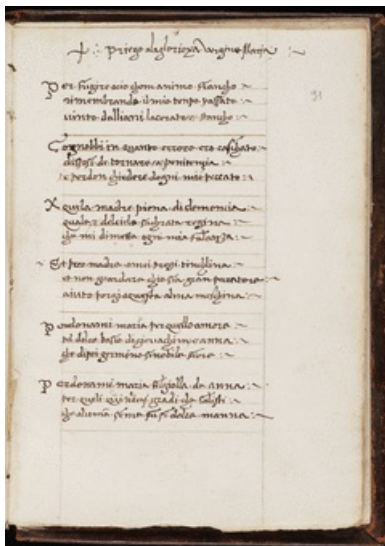 Priego alaglorioxa vergine Maria
31
Per fugire ocio chom animo stancho
rimembrando il mio tenpo passato
vinto dalli anni lacerato e stancho
Cognobbi in quanto errore era
disposi de tornare a penitenzia
e perdon chiedere dogni mio peccato
quela madre piena di clemenzia
quale del cielo sachrata regina
che mi dimostra ogni mia
madre omei
et non guardare chio sia gran peccatore
aiuto porgi aquesta alma meschina
Perdonami maria per quello amore
del dolce bosio di giovachino e anna
che dipoi germino si nobile fiore
Perdonami maria figliolla de anna
per quelli quindeci gradi che salisti
che al si dolce manna